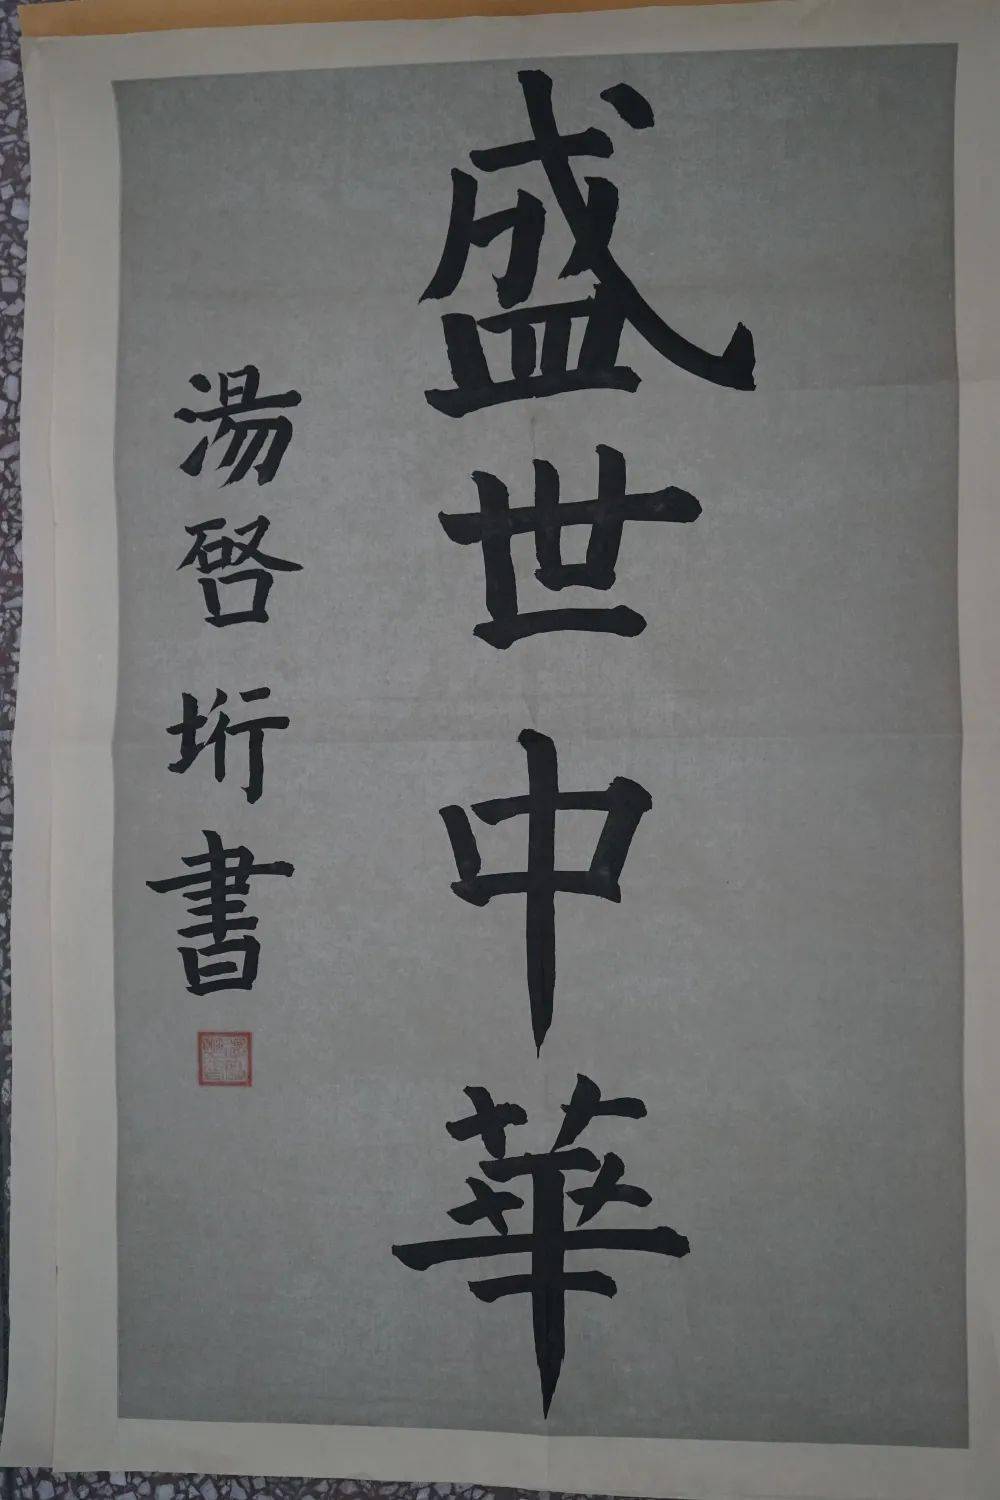 盛世中華
湯啓垳書